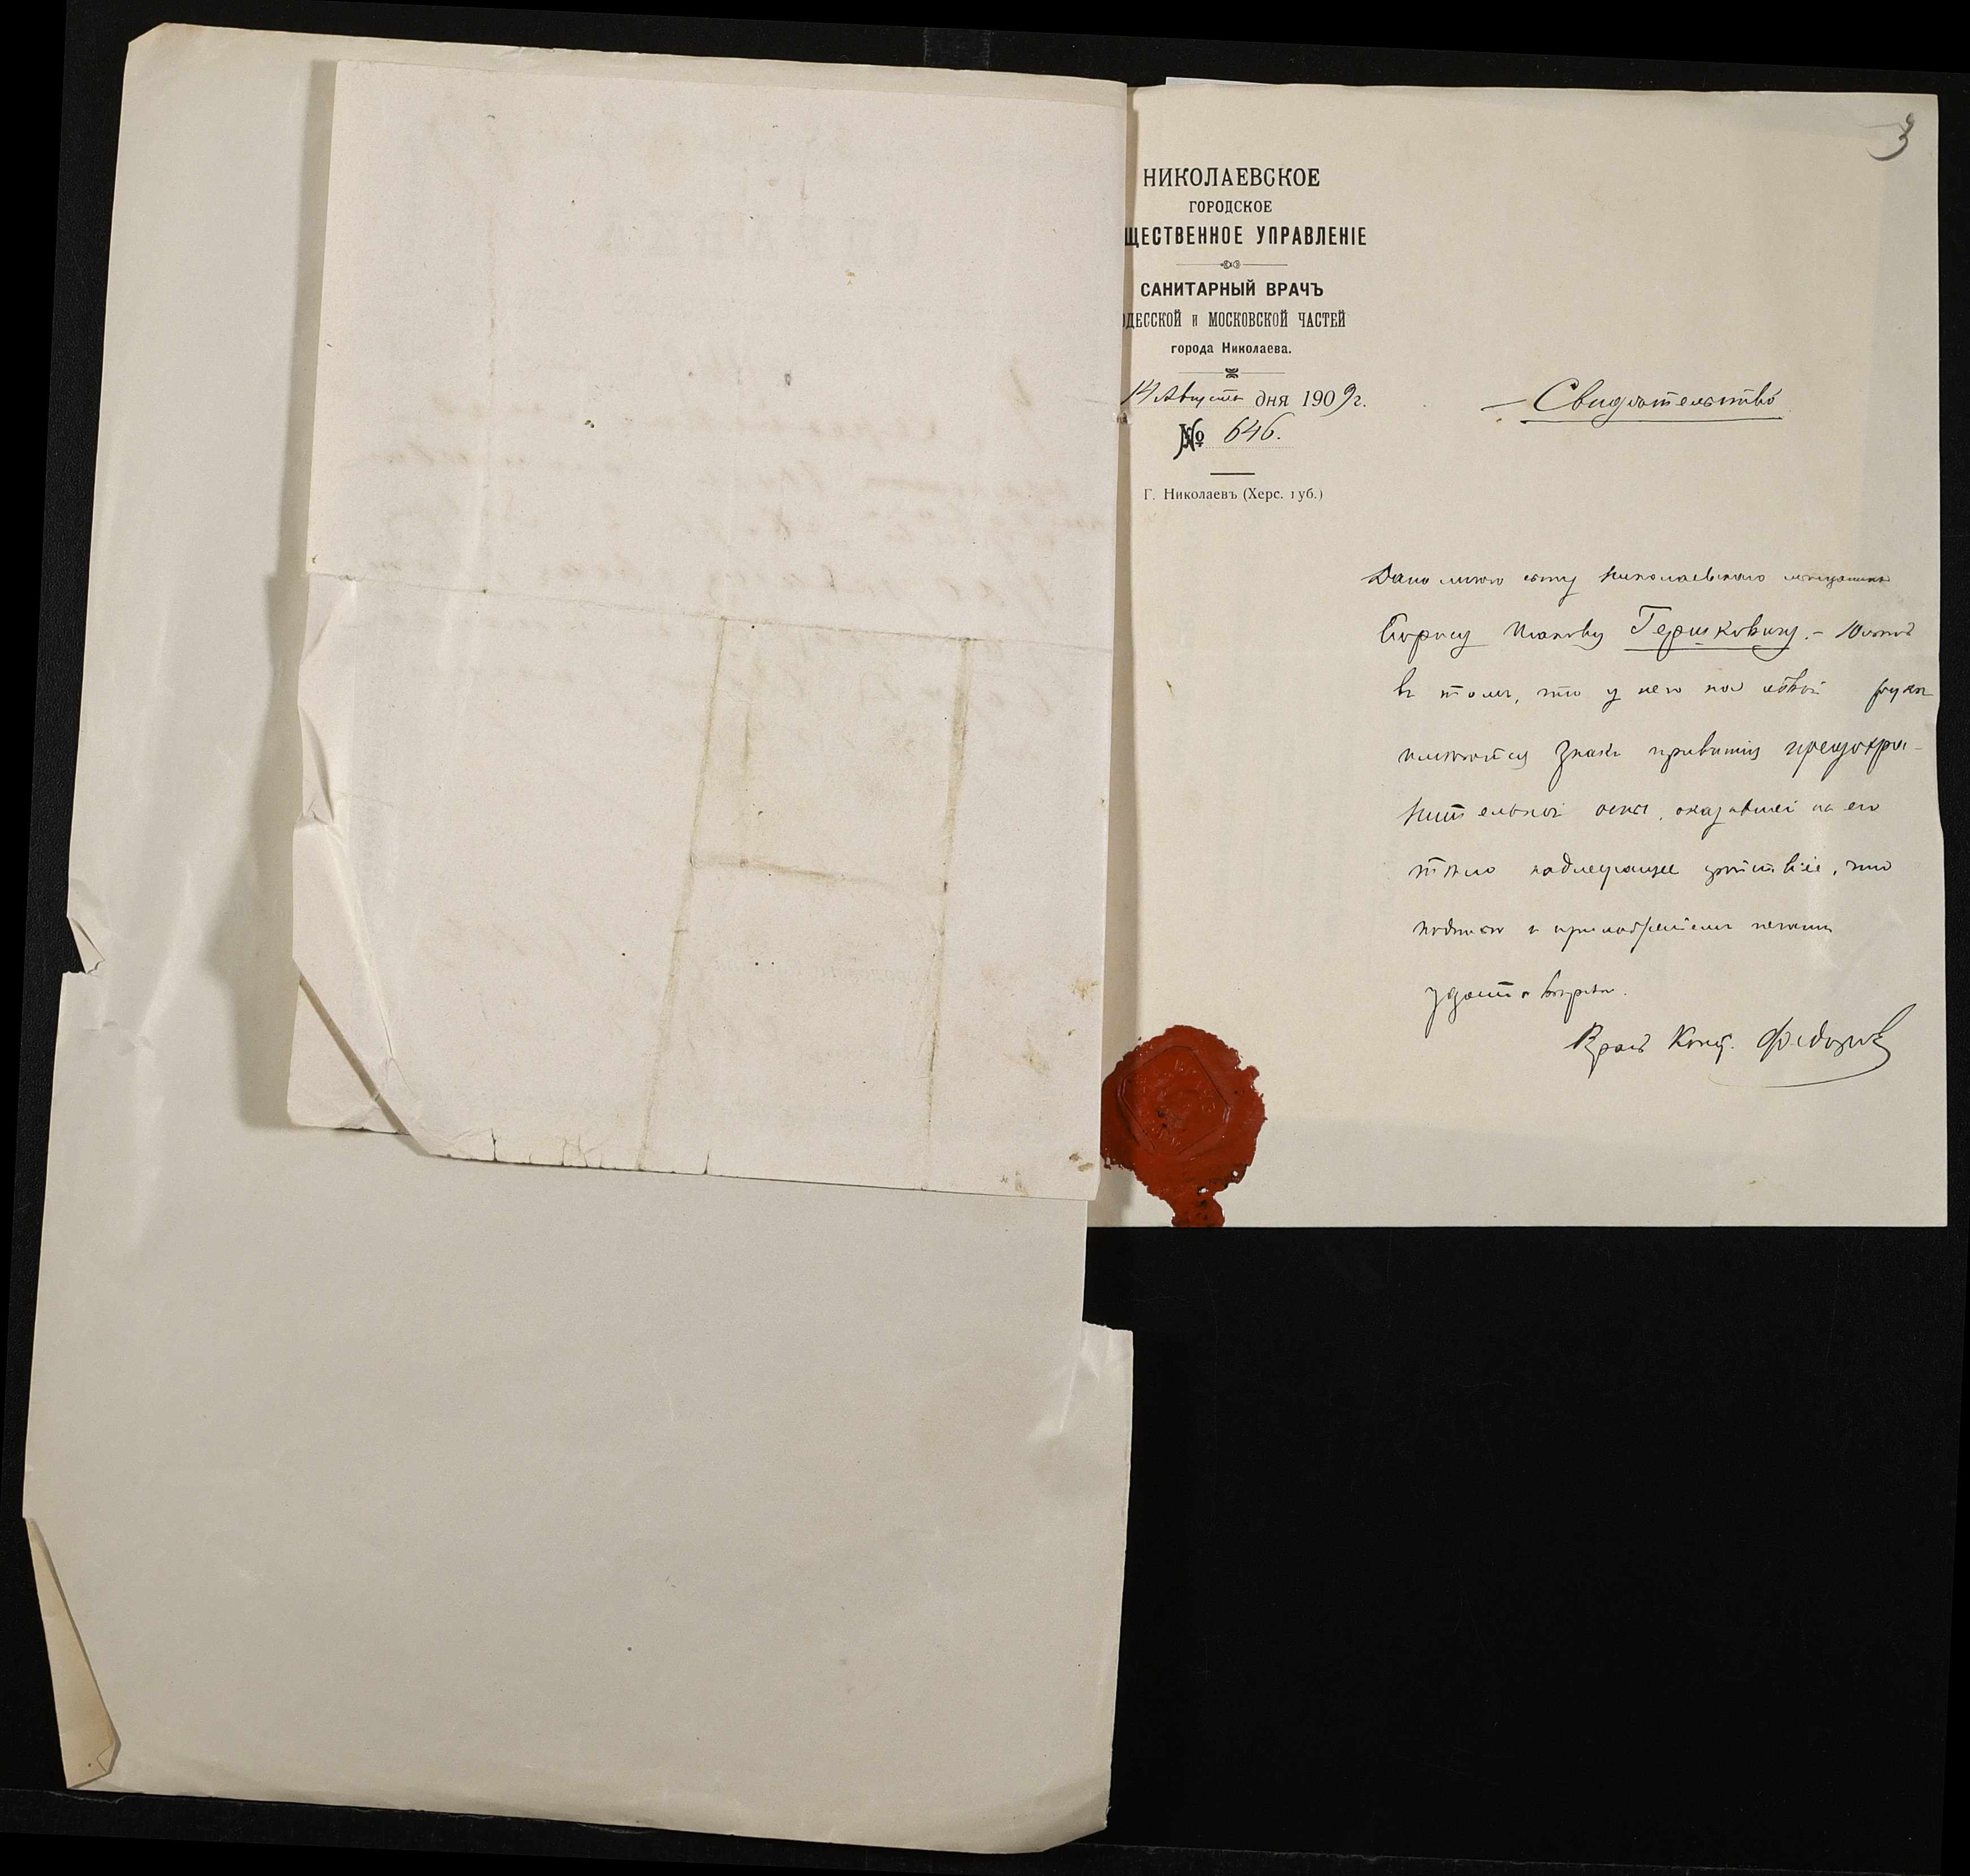 3
НИКОЛАЕВСКОЕ
ГОРОДСКОЕ
ЩЕСТВЕННОЕ УПРАВЛЕНІЕ
САНИТАРНЫЙ ВРАЧЪ
ОДЕССКОЙ и МОСКОВСКОЙ ЧАСТЕЙ
города Николаева.
14 Августа дня 1909 г.
№ 646.
Г. Николаевъ (Херс. губ.)
Свидѣтельство
Дано мною сыну Николаевскаго мѣщанина
Борису Гершковичу. - 10 лѣтъ
въ томъ, что у него на лѣвой рукѣ
имѣются знаки привитія предохра-
нительной оспы, оказавшей на его
тѣло надлежащее дѣйствіе, что
подписью и приложеніемъ печати
удостовѣряю.
Врачъ Конст. Федоровъ